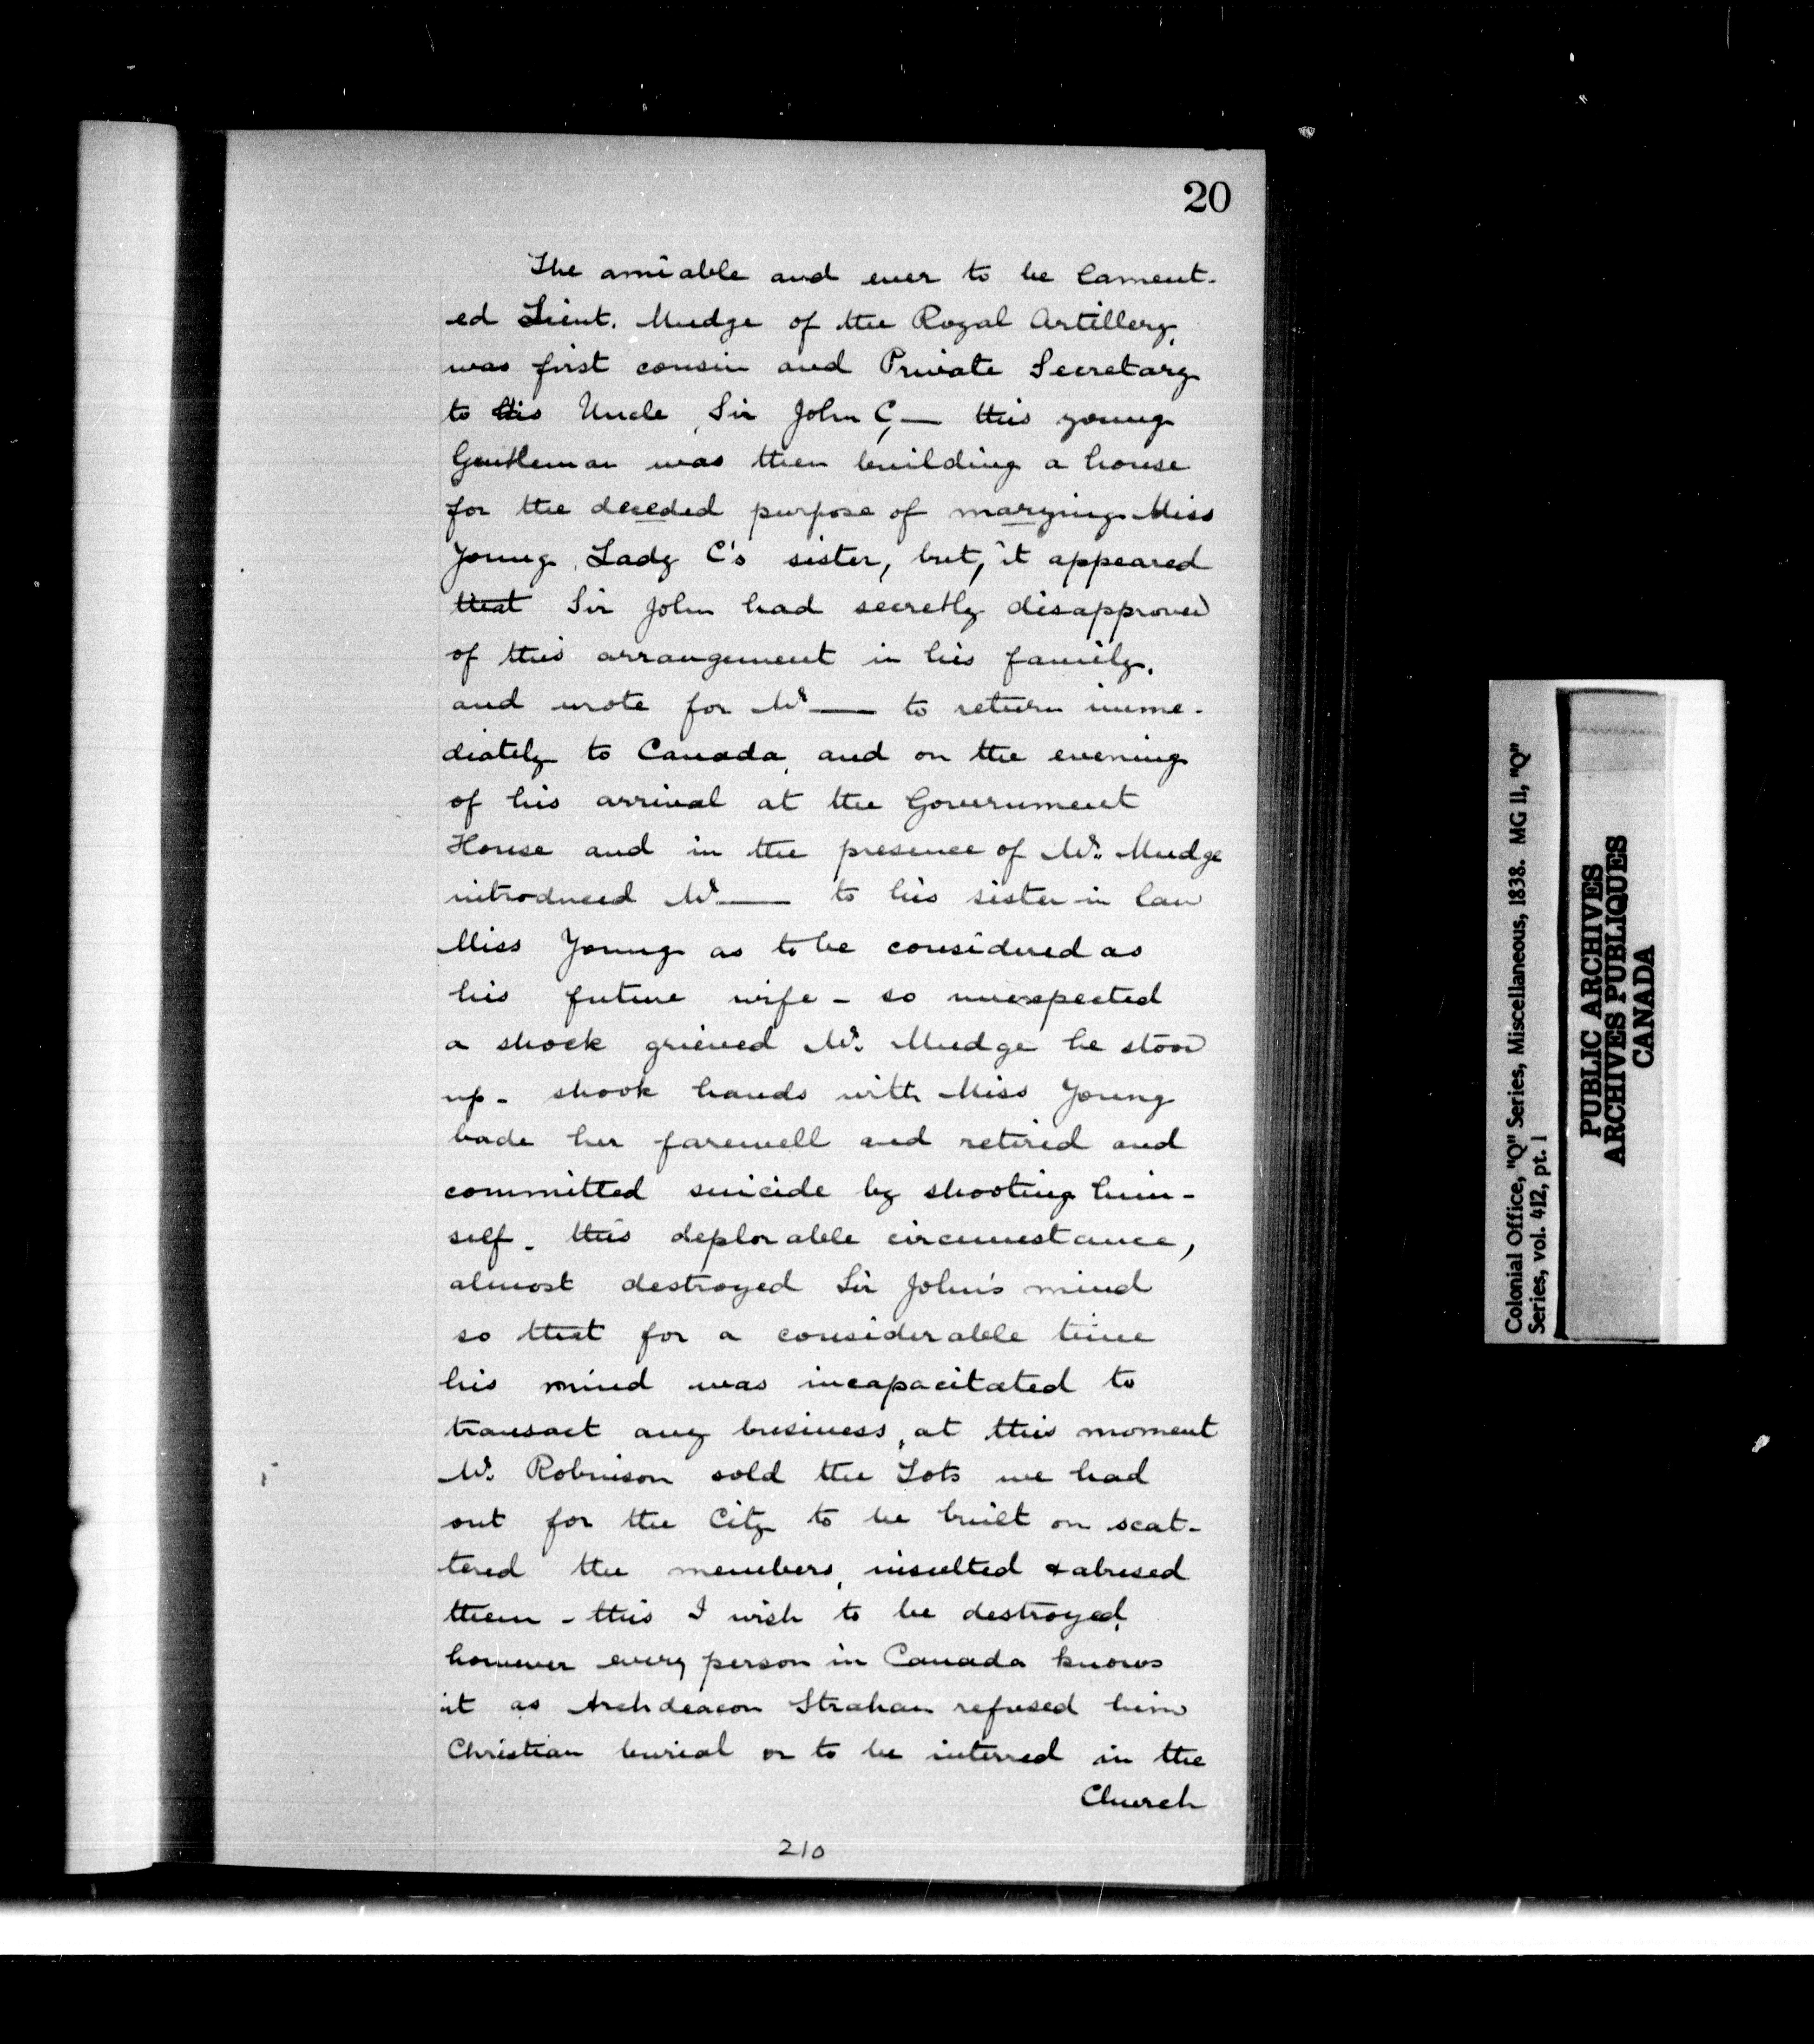 20
The amiable and ever to be lament-
ed Lieut. Mudge of the Royal Artillery,
was first cousin and Private Secretary
to his Uncle, Sir John C,— this young
Gentleman was then building a house
for the deceded purpose of marying Miss
Young, Lady C's sister, but, it appeared
that Sir John had secretly disapproved
of this arrangement in his family.
and wrote for Mr — to return imme-
diately to Canada, and on the evening
of his arrival at the Government
House and in the presence of Mr. Mudge
introduced Mr — to his sister in law
Miss Young as to be considered as
his future wife - so unexpected
a shock grieved Mr. Mudge he stood
up - shook hands with Miss Young
bade her farewell and retired and
committed suicide by shooting him-
self. this deplorable circumstance,
almost destroyed Sir John's mind
so that for a considerable time
his mind was incapacitated to
transact any business, at this moment
Mr. Robinson sold the Lots we had
out for the City to be built on scat-
tered the members, insulted & abused
them - this I wish to be destroyed,
however every person in Canada knows
it as Archdeacon Strahan refused him
Christian burial or to be interred in the
Church
210
Colonial Office, "Q" Series, Miscellaneous, 1838. MG 11, "Q"
Series, vol. 412, pt. 1
PUBLIC ARCHIVES
ARCHIVES PUBLIQUES
CANADA